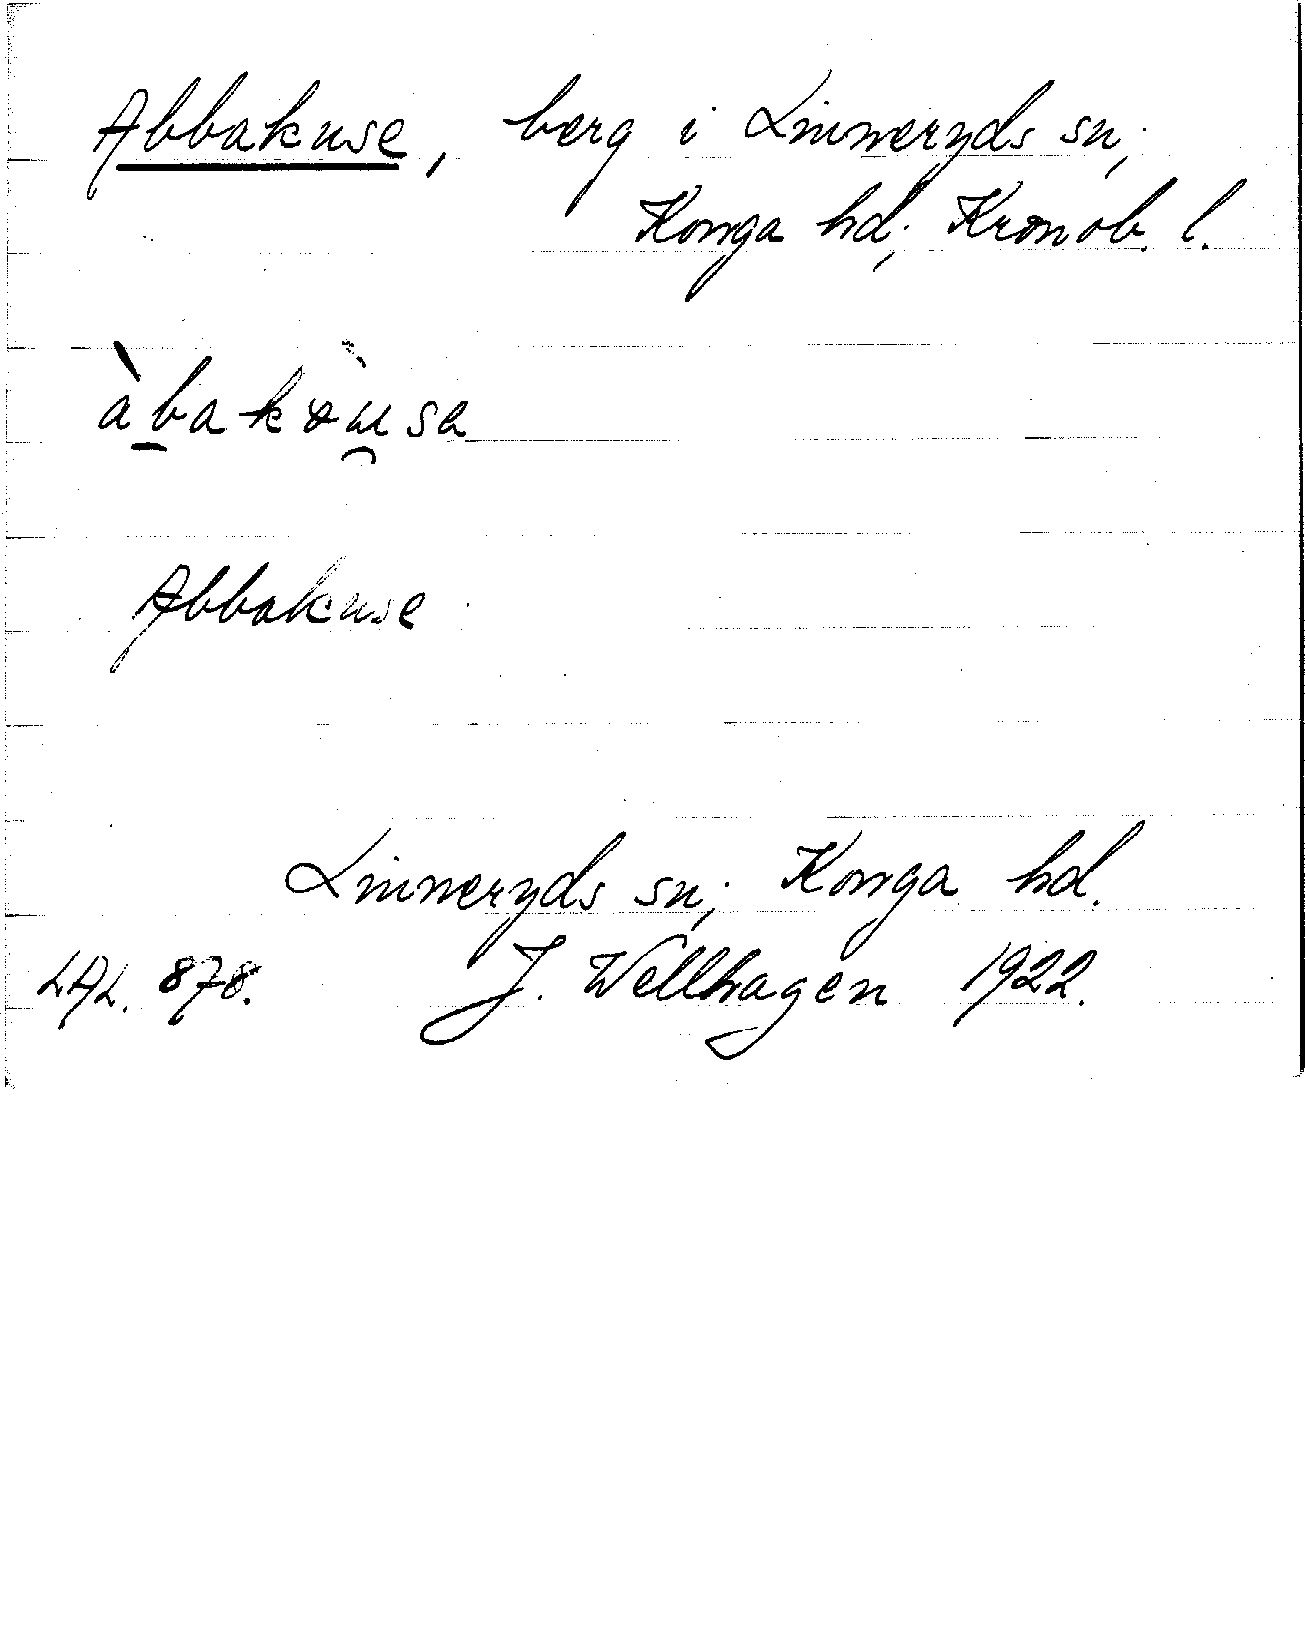 Abbakuse, berg i Linneryds sn,
Konga hd, Kronob. l.
Abbakuse
Linneryds sn, Konga hd.
LAL. 878. J. Wellhagen 1922.